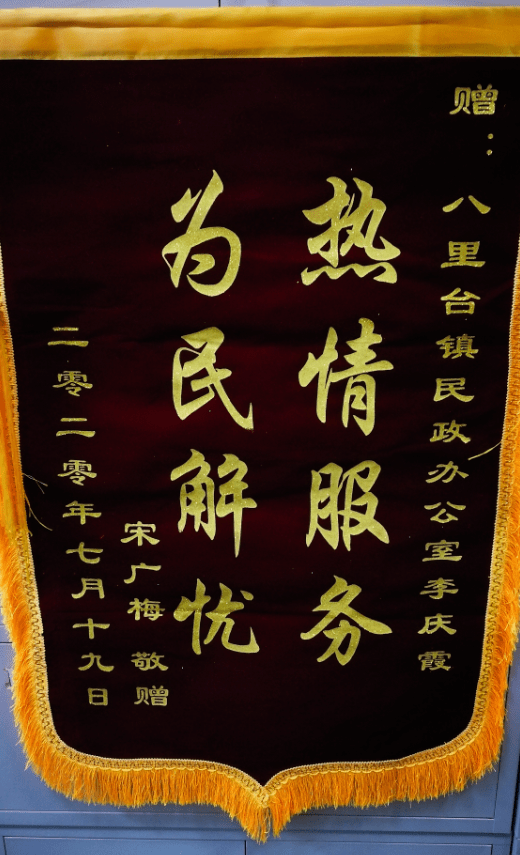 赠：
八里台镇民政办公室李庆霞
热情服务
为民解忧
宋广梅 敬赠
二零二零年七月十九日